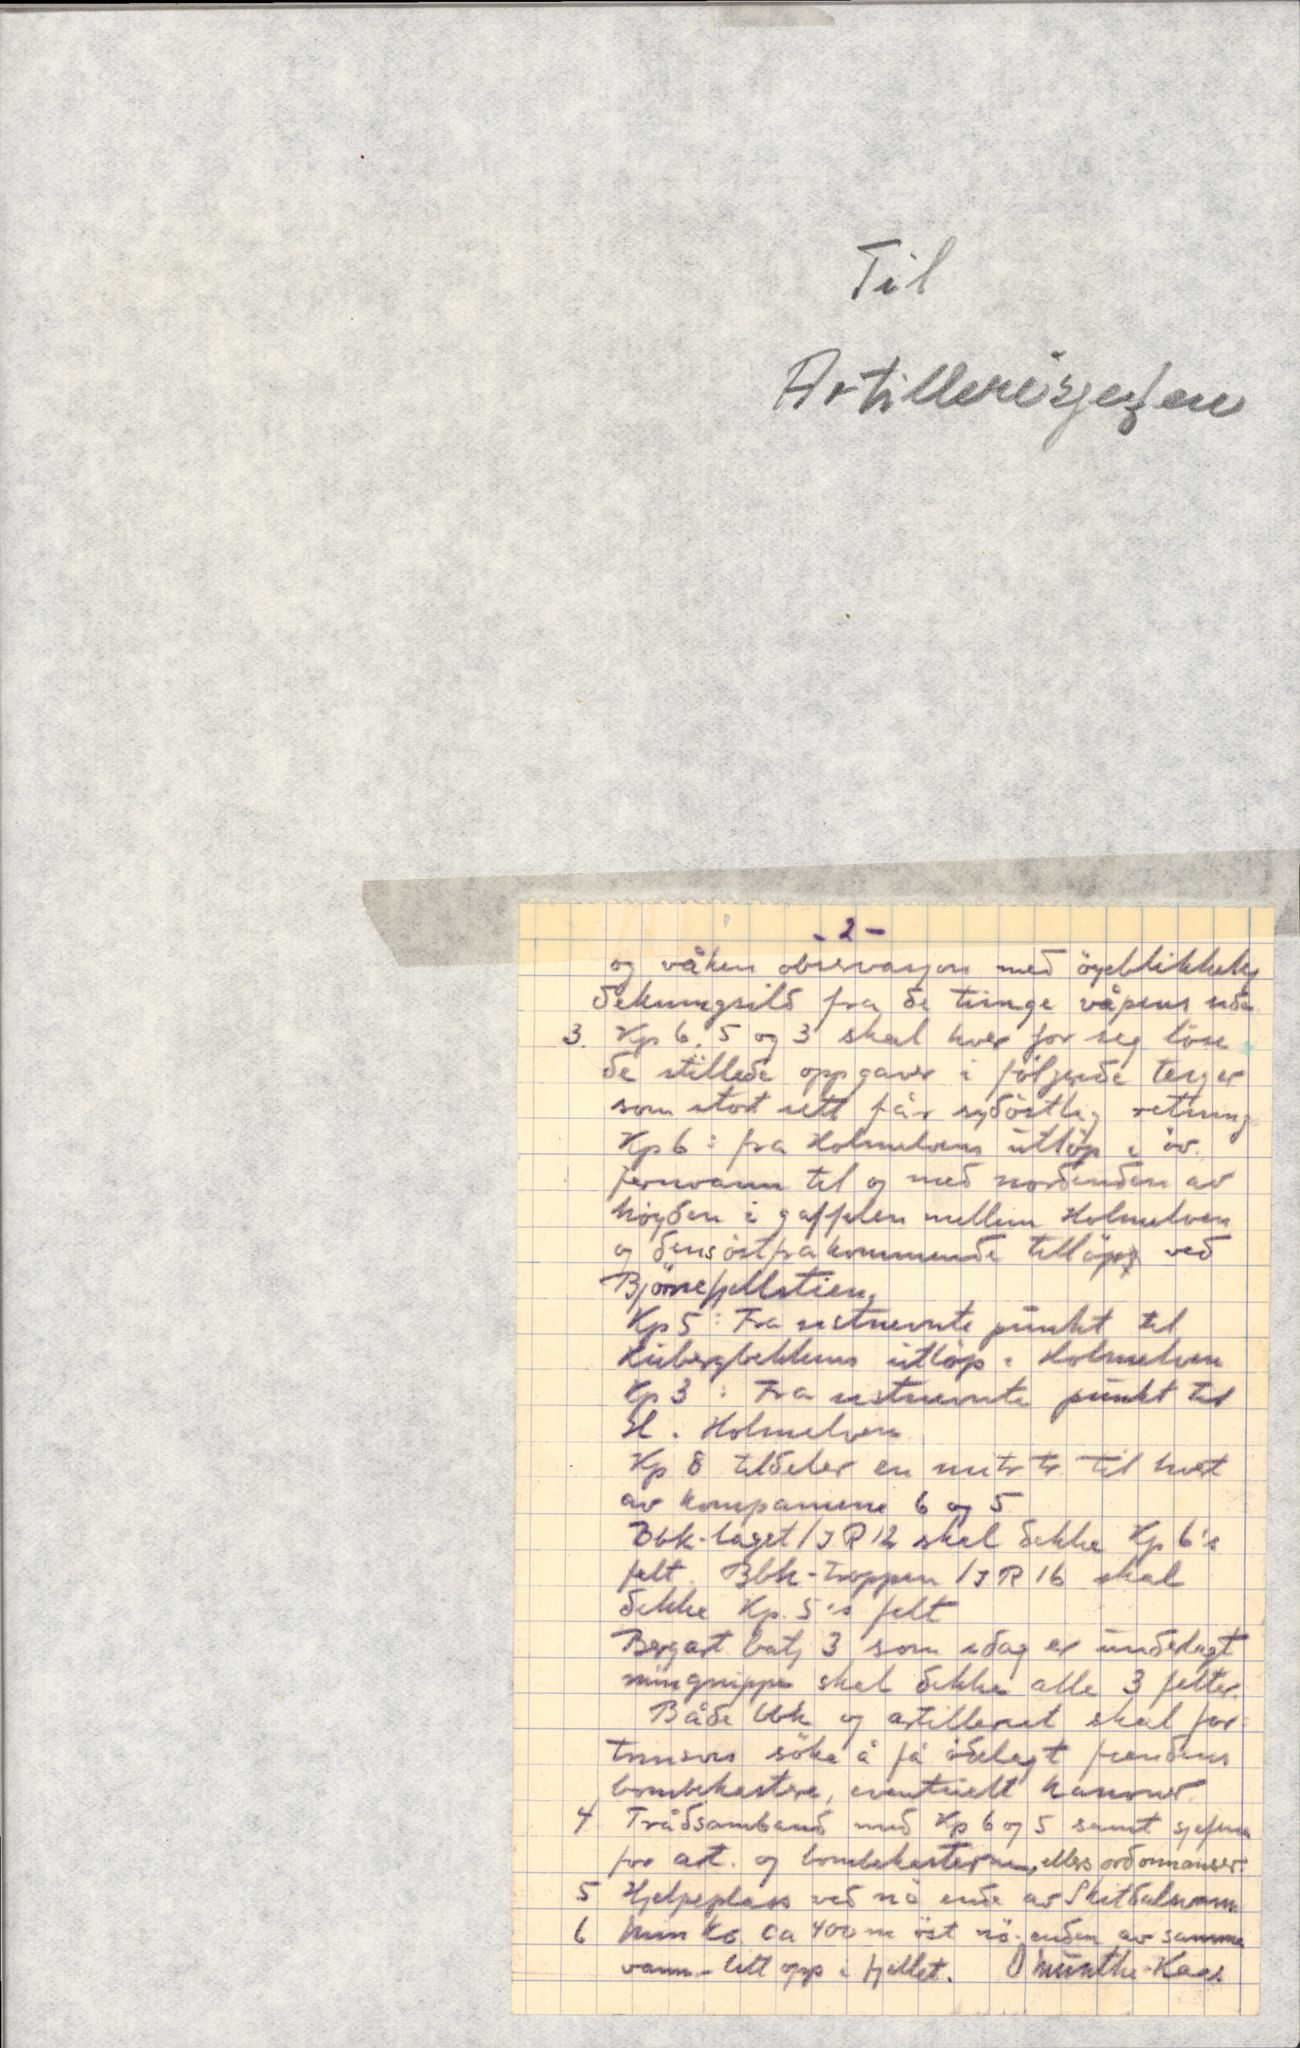 Til
Artillerisjefen
- 2 -
og våken observasjon med öyeblikkelig
dekningsild fra de tunge våpens side
3. Kp 6, 5 og 3 skal hver for seg löse
de stillede oppgaver i fölgende teiger
som stort sett får sydöstlig retning
Kp 6 : fra Holmelvens utlöp i öv.
jernvann til og med nordenden av
höyden i gaffelen mellem Holmelven
og dens östfra kommende tillöp ved
Björnefjellstien,
Kp 5 : Fra sistnevnte punkt til
Kubergbekkens utlöp i Holmelven
Kp 3 : Fra sistnevnte punkt til
St. Holmelven
Kp 8 tildeler en mitr tr til hvert
av kompaniene 6 og 5
Bbk-laget/IR 12 skal dekke Kp 6's
felt. Bbk-troppen/IR 16 skal
dekke Kp. 5's felt
Bergart batj 3 som idag er underlagt
min gruppe skal dekke alle 3 felter.
Både bbk og artilleriet skal for-
trinsvis söke å få ödelagt fiendens
bombekastere, eventuelt kanoner.
4 Trådsamband med Kp 6 og 5 samt sjefene
for art. og bombekasterne, ellers ordonnanser.
5 Hjelpeplass ved nö ende av Skitdalsvann
6 Min Ko. ca 400 m öst nö. enden av samme
vann - litt opp i fjellet. O Munthe-Kaas